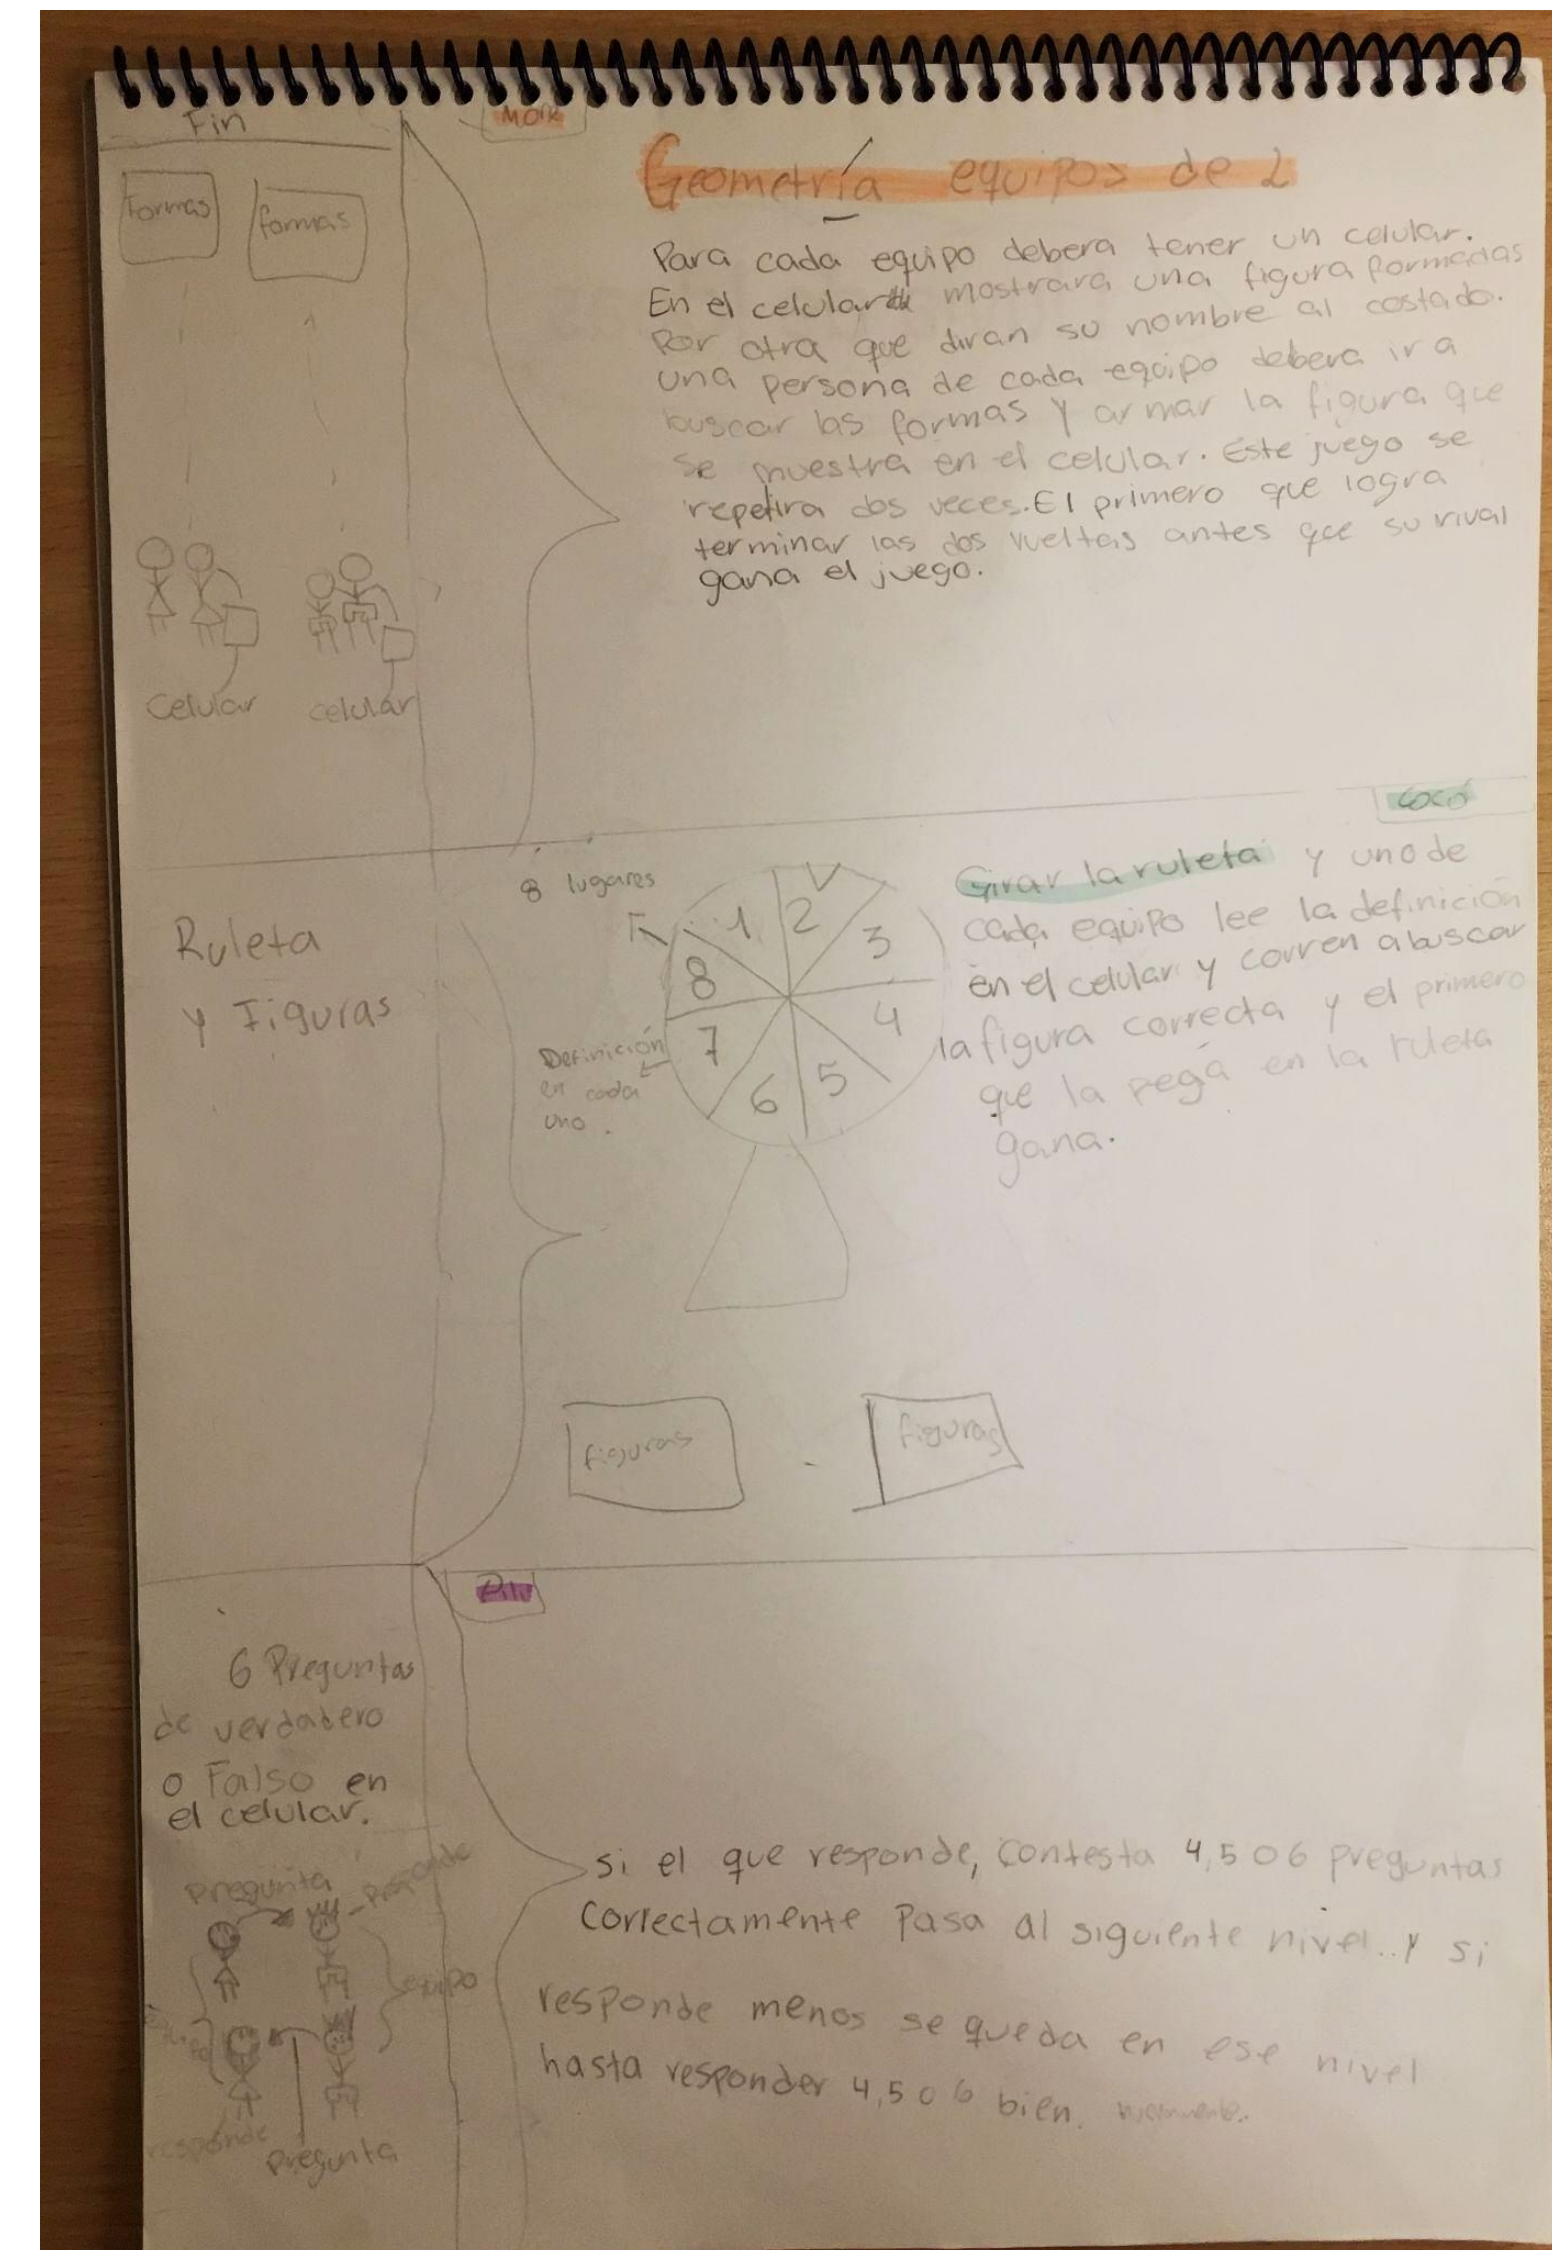 Fin
Formas
formas
Celular
celular
Geometría equipos de 2
Para cada equipo debera tener un celular.
En el celular mostrara una figura formadas
Por otra que diran su nombre al costado.
una persona de cada equipo debera ir a
buscar las formas y armar la figura que
se muestra en el celular. Este juego se
repetira dos veces. El primero que logra
terminar las dos vueltas antes que su rival
gana el juego.
Coco
Ruleta
y Figuras
8 lugares
1
2
3
4
5
6
7
8
Definición
en cada
uno.
Girar la ruleta y uno de
cada equipo lee la definición
en el celular y corren a buscar
la figura correcta y el primero
que la pega en la ruleta
gana.
figuras
figuras
6 Preguntas
de verdadero
o Falso en
el celular.
pregunta
responde
equipo
equipo
responde
pregunta
si el que responde, contesta 4,5 o 6 preguntas
Correctamente Pasa al siguiente nivel.. y si
responde menos se queda en ese nivel
hasta responder 4,5 o 6 bien.